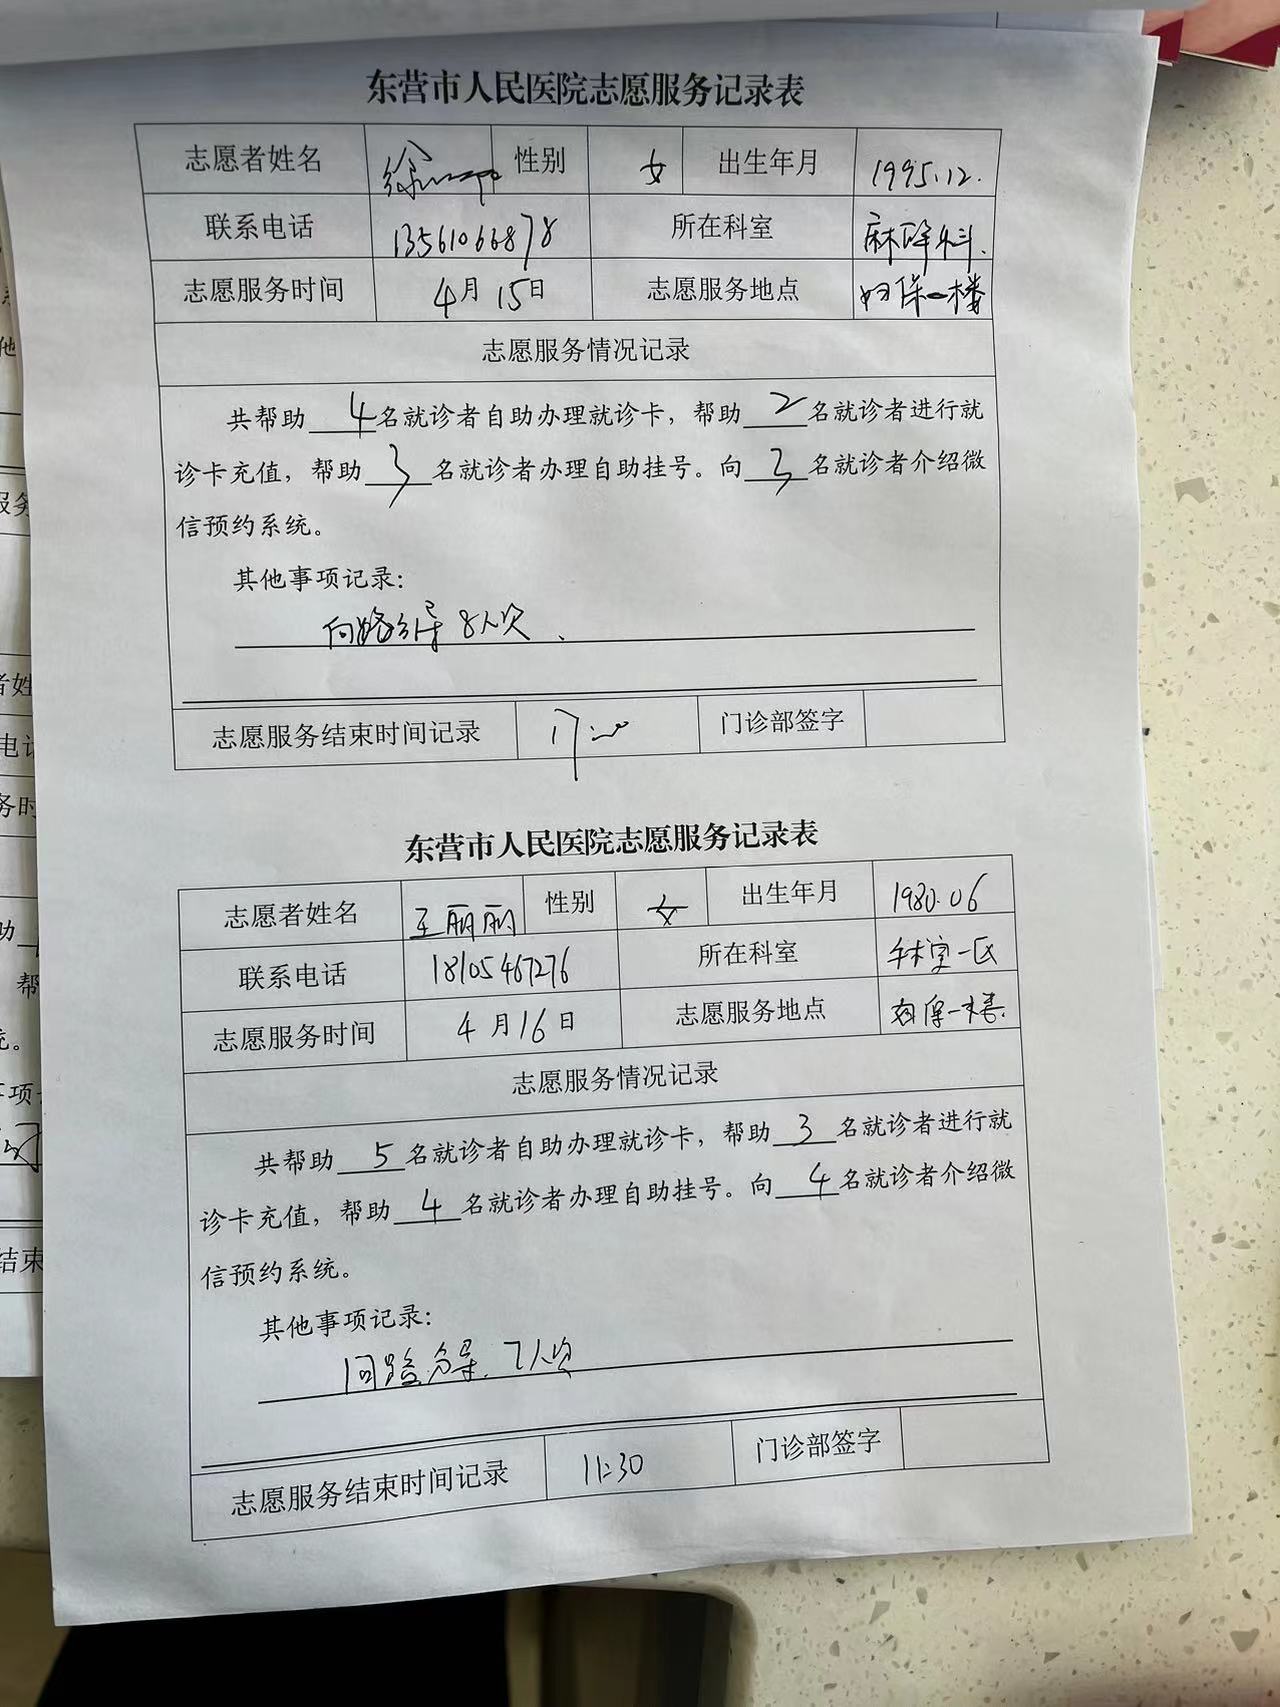 东营市人民医院志愿服务记录表
志愿者姓名 徐 性别 女 出生年月 1995.12.
联系电话 13561066878 所在科室 麻醉科.
志愿服务时间 4月15日 志愿服务地点 妇保一楼
志愿服务情况记录
共帮助 4 名就诊者自助办理就诊卡，帮助 2 名就诊者进行就
诊卡充值，帮助 3 名就诊者办理自助挂号。向 3 名就诊者介绍微
信预约系统。
其他事项记录：
问路引导 8人次.
志愿服务结束时间记录 17:00 门诊部签字
东营市人民医院志愿服务记录表
志愿者姓名 王丽丽 性别 女 出生年月 1980.06
联系电话 18105467276 所在科室 手术室一区
志愿服务时间 4月16日 志愿服务地点 妇保一楼.
志愿服务情况记录
共帮助 5 名就诊者自助办理就诊卡，帮助 3 名就诊者进行就
诊卡充值，帮助 4 名就诊者办理自助挂号。向 4 名就诊者介绍微
信预约系统。
其他事项记录：
问路分导. 7人次
志愿服务结束时间记录 11:30 门诊部签字